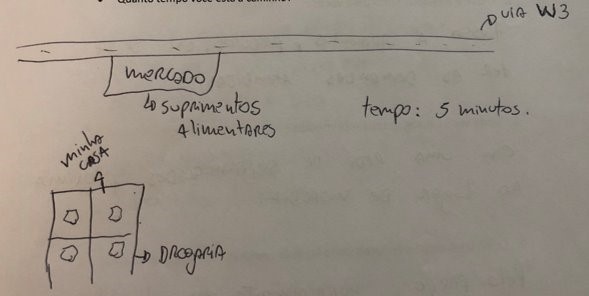 • Quanto tempo você está a caminho?
VIA W3
MERCADO
SUPRIMENTOS
ALIMENTARES
tempo: 5 minutos.
minha
CASA
DROGARIA